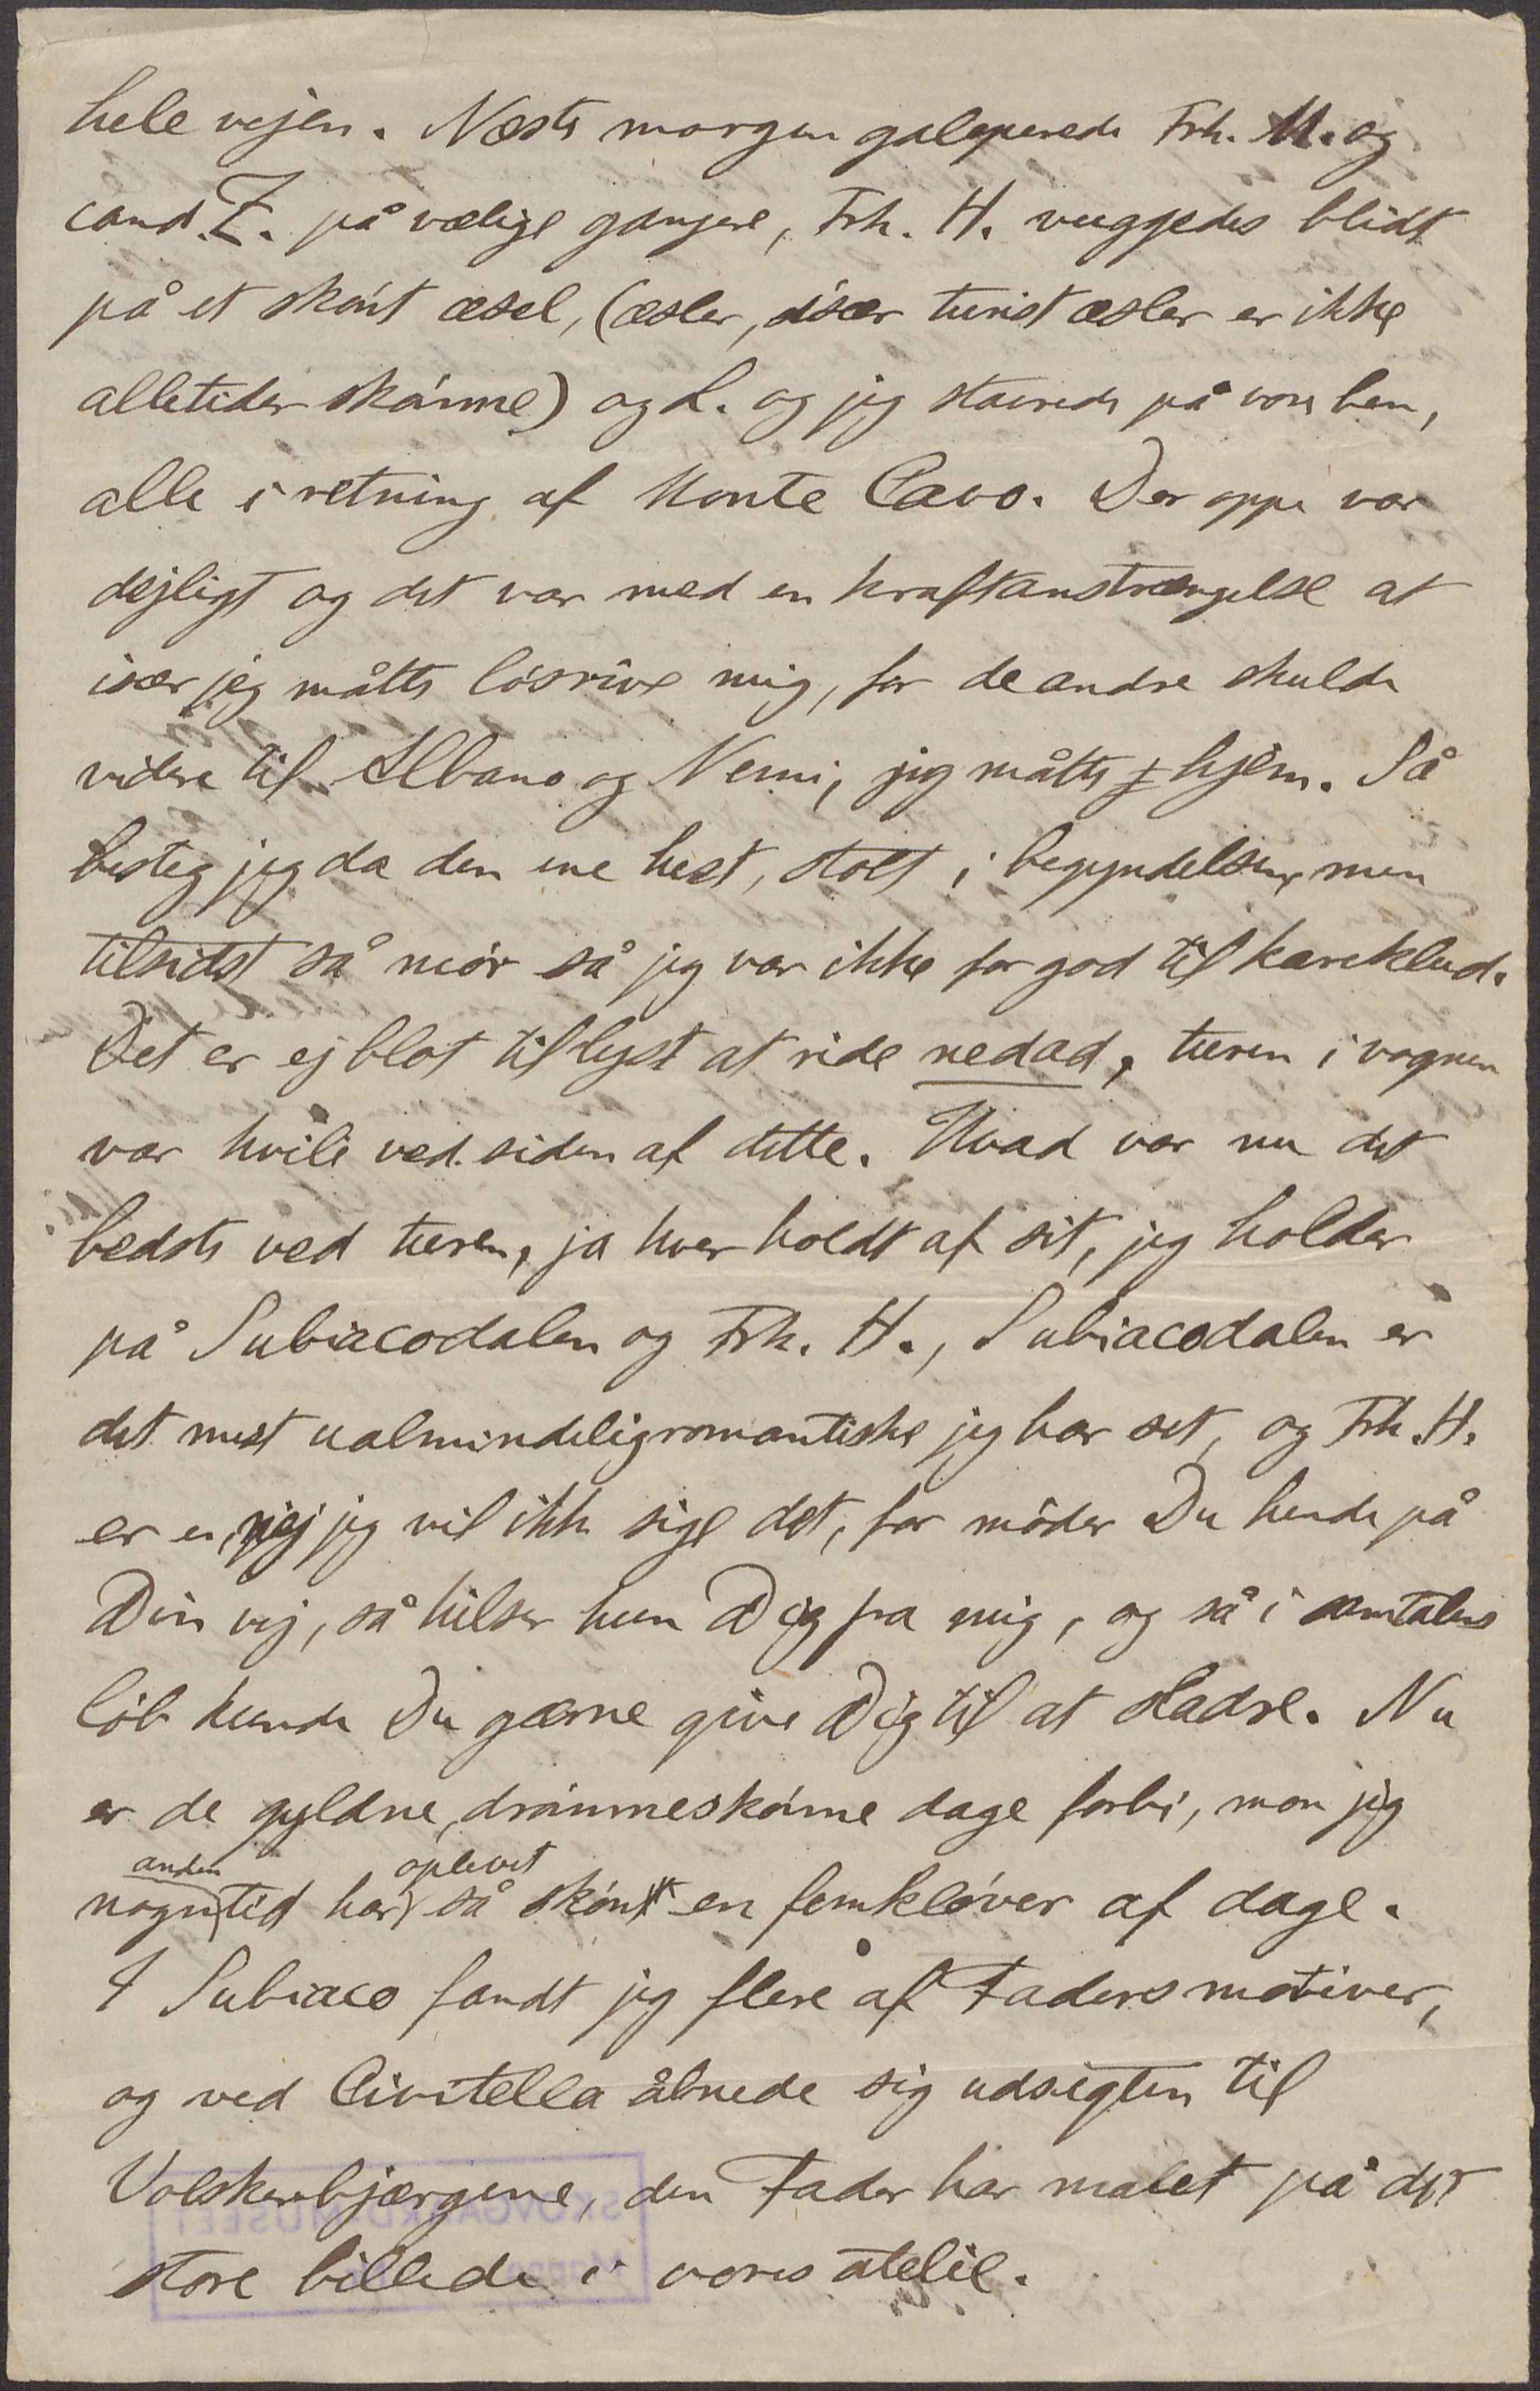 hele vejen. Næste morgen galoperede Frk. M. og
cand. Z. på vælige gangere, Frk. H. vuggedes blidt
på et skönt æsel, (æsler, især turistæsler er ikke
alletider skönne) og L. og jeg stavrede på vore ben,
alle i retning af Monte Cavo. Der oppe var
dejligt og det var med en kraftanstrængelse at
især jeg måtte lösrive mig, for de andre skulde
videre til Albano og Nemi, jeg måtte hjem. Så
besteg jeg da den ene hest, stolt i begyndelsen, men
tilsidst så mör så jeg var ikke for god til kareklud.
Det er ej blot til lyst at ride nedad, turen i vognen
var hvile ved siden af dette. Hvad var nu det
bedste ved turen, ja hver holdt af sit, jeg holder
på Subiacodalen og Frk. H., Subiacodalen er
det mest ualmindeligromantiske jeg har set, og Frk. H.
er en, nej jeg vil ikke sige det, for möder Du hende på
Din vej, så hilser hun Dig fra mig, og så i samtalens
löb kunde Du gærne give Dig til at sladre. Nu
er de gyldne, drömmeskönne dage forbi, mon jeg
nogen anden tid har oplevet så skönt en femklöver af dage.
I Subiaco fandt jeg flere af Faders motiver,
og ved Civitella åbnede sig udsigten til
Volskerbjærgene, den Fader har malet på det
store billede i vores atelie.